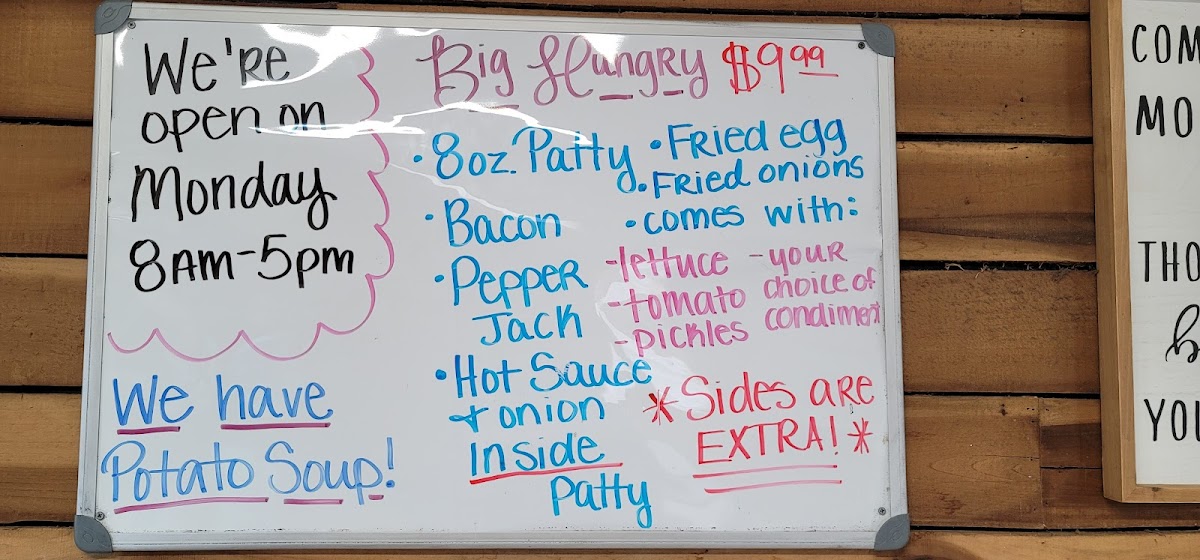 We're
open on
Monday
8AM-5pm
We have
Potato Soup!
Big Hungry $9.99
• 8oz. Patty
• Bacon
• Pepper
Jack
• Hot Sauce
& onion
Inside
Patty
• Fried egg
• Fried onions
• comes with:
-lettuce
-tomato
-pickles
-your
choice of
condiment
*Sides are
EXTRA!*
COM
MO
THO
YOU